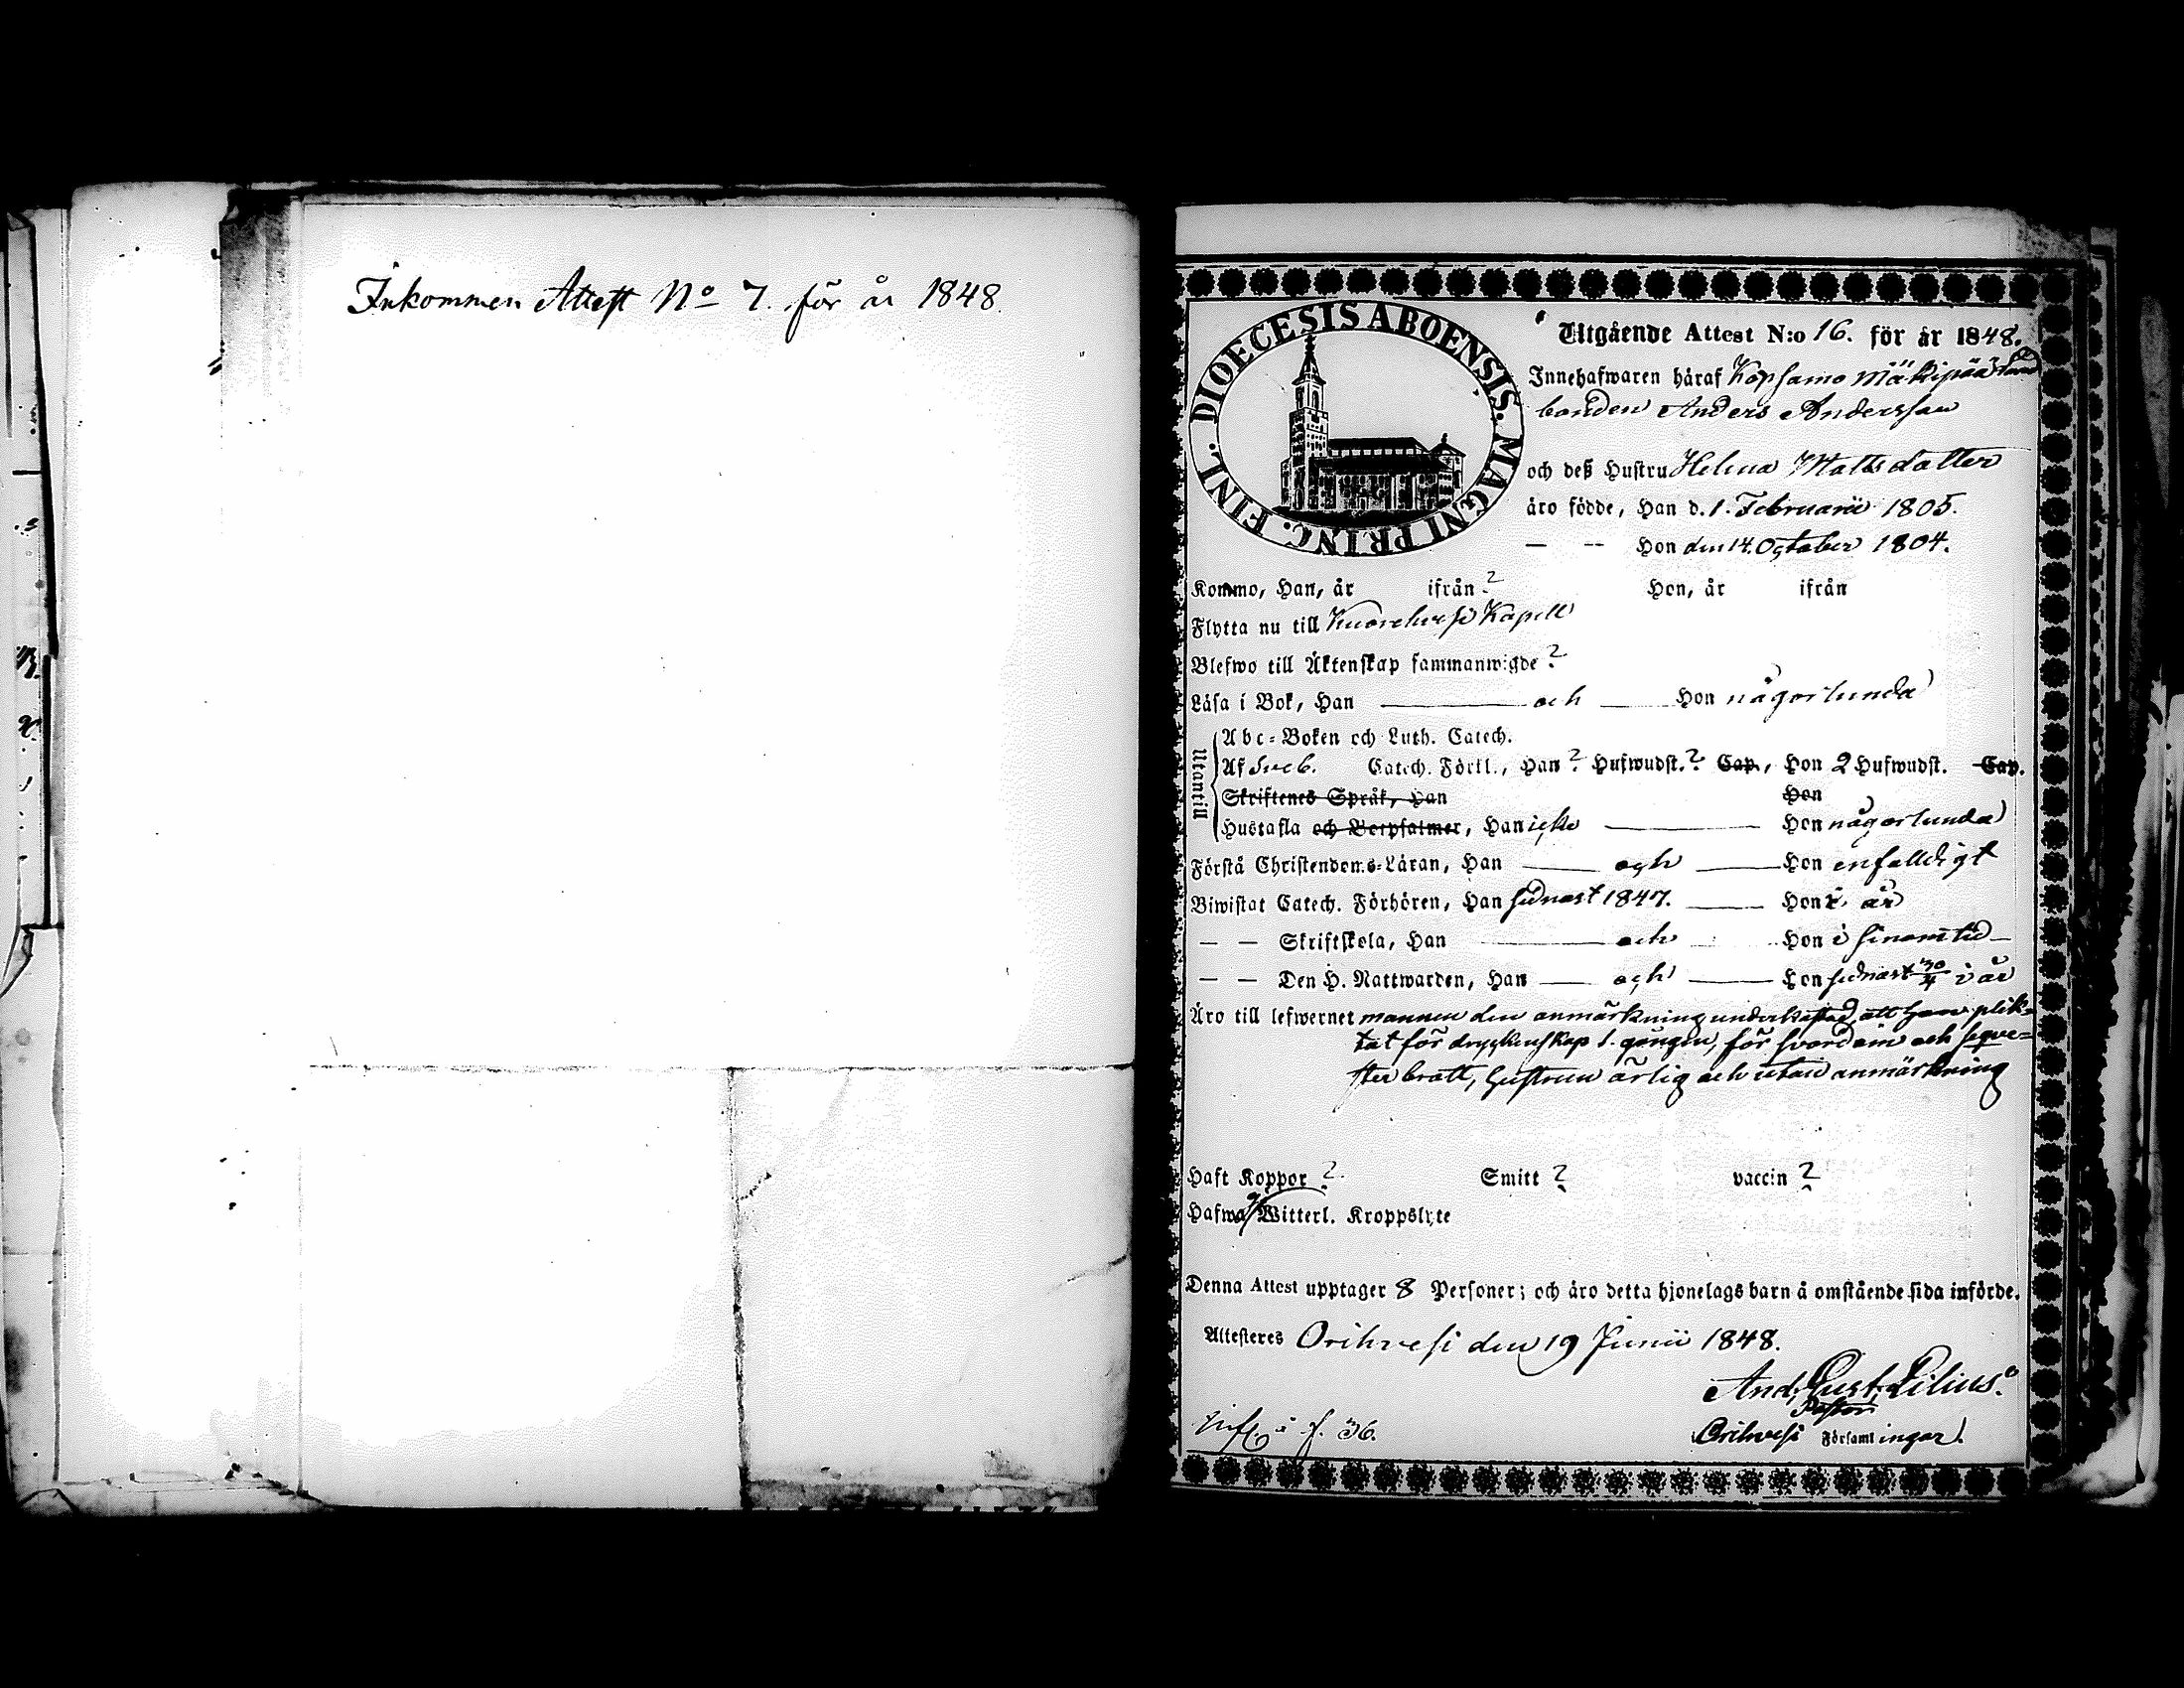 Inkommen Attest No 7. för år 1848.
DIOECESIS ABOENSIS. MAGNI PRINC. FINL.
Utgående Attest N:o 16. för år 1848.
Innehafwaren häraf Kopsamo Mäkipää Land
bonden Anders Andersson
och deß Hustru Helena Mattsdotter
äro födde, Han d. 1. Februarii 1805.
— — Hon den 14. October 1804.
Kommo, Han, år ifrån ? Hon, år ifrån
Flytta nu till Kuorehvesi Kapell
Blefwo till Äktenskap sammanwigde ?
Läsa i Bok, Han ——— och ——— Hon någorlunda
Utantill
Abc-Boken och Luth. Catech.
Af Sveb. Catech. Förkl., Han ? Hufwudst. ? Cap., Hon 2 Hufwudst. Cap.
Skriftenes Språk, Han Hon
Hustafla och Botpsalmer, Han icke ——— Hon någorlunda
Förstå Christendoms-Läran, Han ——— och ——— Hon enfaldigt
Biwistat Catech. Förhören, Han sednast 1847. ——— Hon i år
— — Skriftskola, Han ——— och ——— Hon i sinom tid —
— — Den H. Nattwarden, Han ——— och ——— Hon sednast 30/4 i år
Äro till lefwernet mannen den anmärkning underkastad, att han plik-
tat för dryckenskap 1. gången, för svordom och seqve-
ster brott, hustrun ärlig och utan anmärkning
Haft Koppor ? Smitt ? vaccin ?
Hafwa ej Witterl. Kroppslyte
Denna Attest upptager 8 Personer; och äro detta hjonelags barn å omstående sida införde.
Attesteres Orihvesi den 19 Junii 1848.
And. Gust. Lilius.
Pastor
Orihvesi Församlingar.
f. 36.